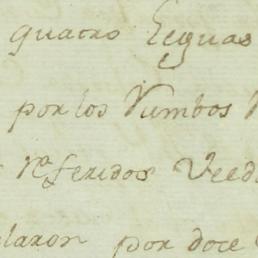 quatro Leguas
por los Rumbos
referidos
por doce